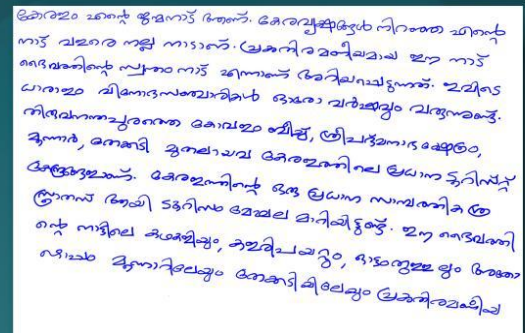 കേരളം എന്റെ ജന്മനാട് ആണ്. കേരവൃക്ഷങ്ങൾ നിറഞ്ഞ എന്റെ
നാട് വളരെ നല്ല നാടാണ്. പ്രകൃതിരമണീയമായ ഈ നാട്
ദൈവത്തിന്റെ സ്വന്തം നാട് എന്നാണ് അറിയപ്പെടുന്നത്. ഇവിടെ
ധാരാളം വിനോദസഞ്ചാരികൾ ഓരോ വർഷവും വരുന്നുണ്ട്.
തിരുവനന്തപുരത്തെ കോവളം ബീച്ച്, ശ്രീപദ്മനാഭ ക്ഷേത്രം,
മൂന്നാർ, തേക്കടി മുതലായവ കേരളത്തിലെ പ്രധാന ടൂറിസ്റ്റ്
കേന്ദ്രങ്ങളാണ്. കേരളത്തിന്റെ ഒരു പ്രധാന സാമ്പത്തിക സ്ര
സ്രോതസ് ആയി ടൂറിസം മേഖല മാറിയിട്ടുണ്ട്. ഈ ദൈവത്തി
ന്റെ നാട്ടിലെ കഥകളിയും, കളരിപയറ്റും, ഓട്ടംതുള്ളലും അതോ
മൂന്നാറിലേയും തേക്കടിയിലേയും പ്രകൃതിരമണീയ